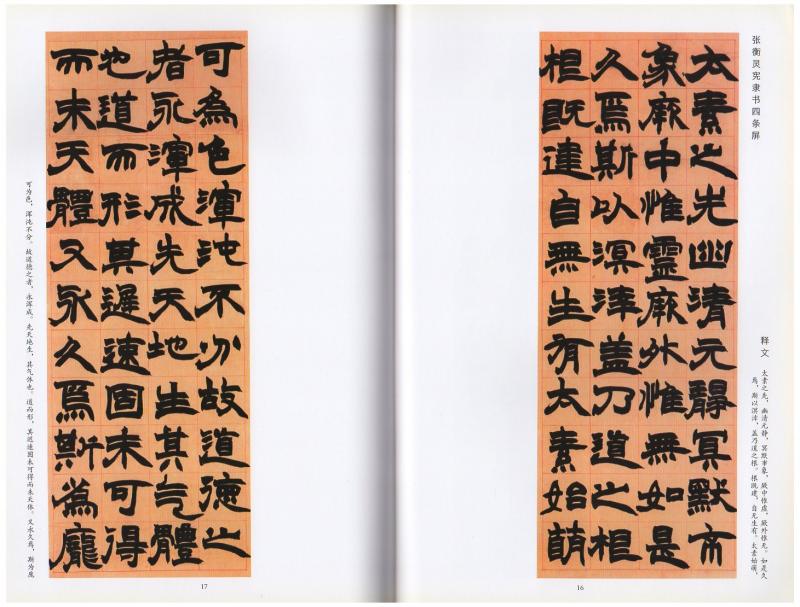 张衡灵宪隶书四条屏
太素之先幽清元靜冥默市
象厥中惟靈厥外惟無如是
久焉斯以溟涬盖乃道之根
根既建自無生有太素始萌
释文
太素之先，幽清元静，冥默市象，厥中惟虚，厥外惟无。如是久
焉，斯以溟涬，盖乃道之根。根既建，自无生有。太素始萌，
16
可為色渾沌不分故道德之
者永渾成先天地生其气體
也道而形其遲速固未可得
而未天體又永久焉斯為龐
可为色，浑沌不分。故道德之者，永浑成。先天地生，其气体也。道而形，其迟速固未可得而未天体。又永久焉，斯为庞
17